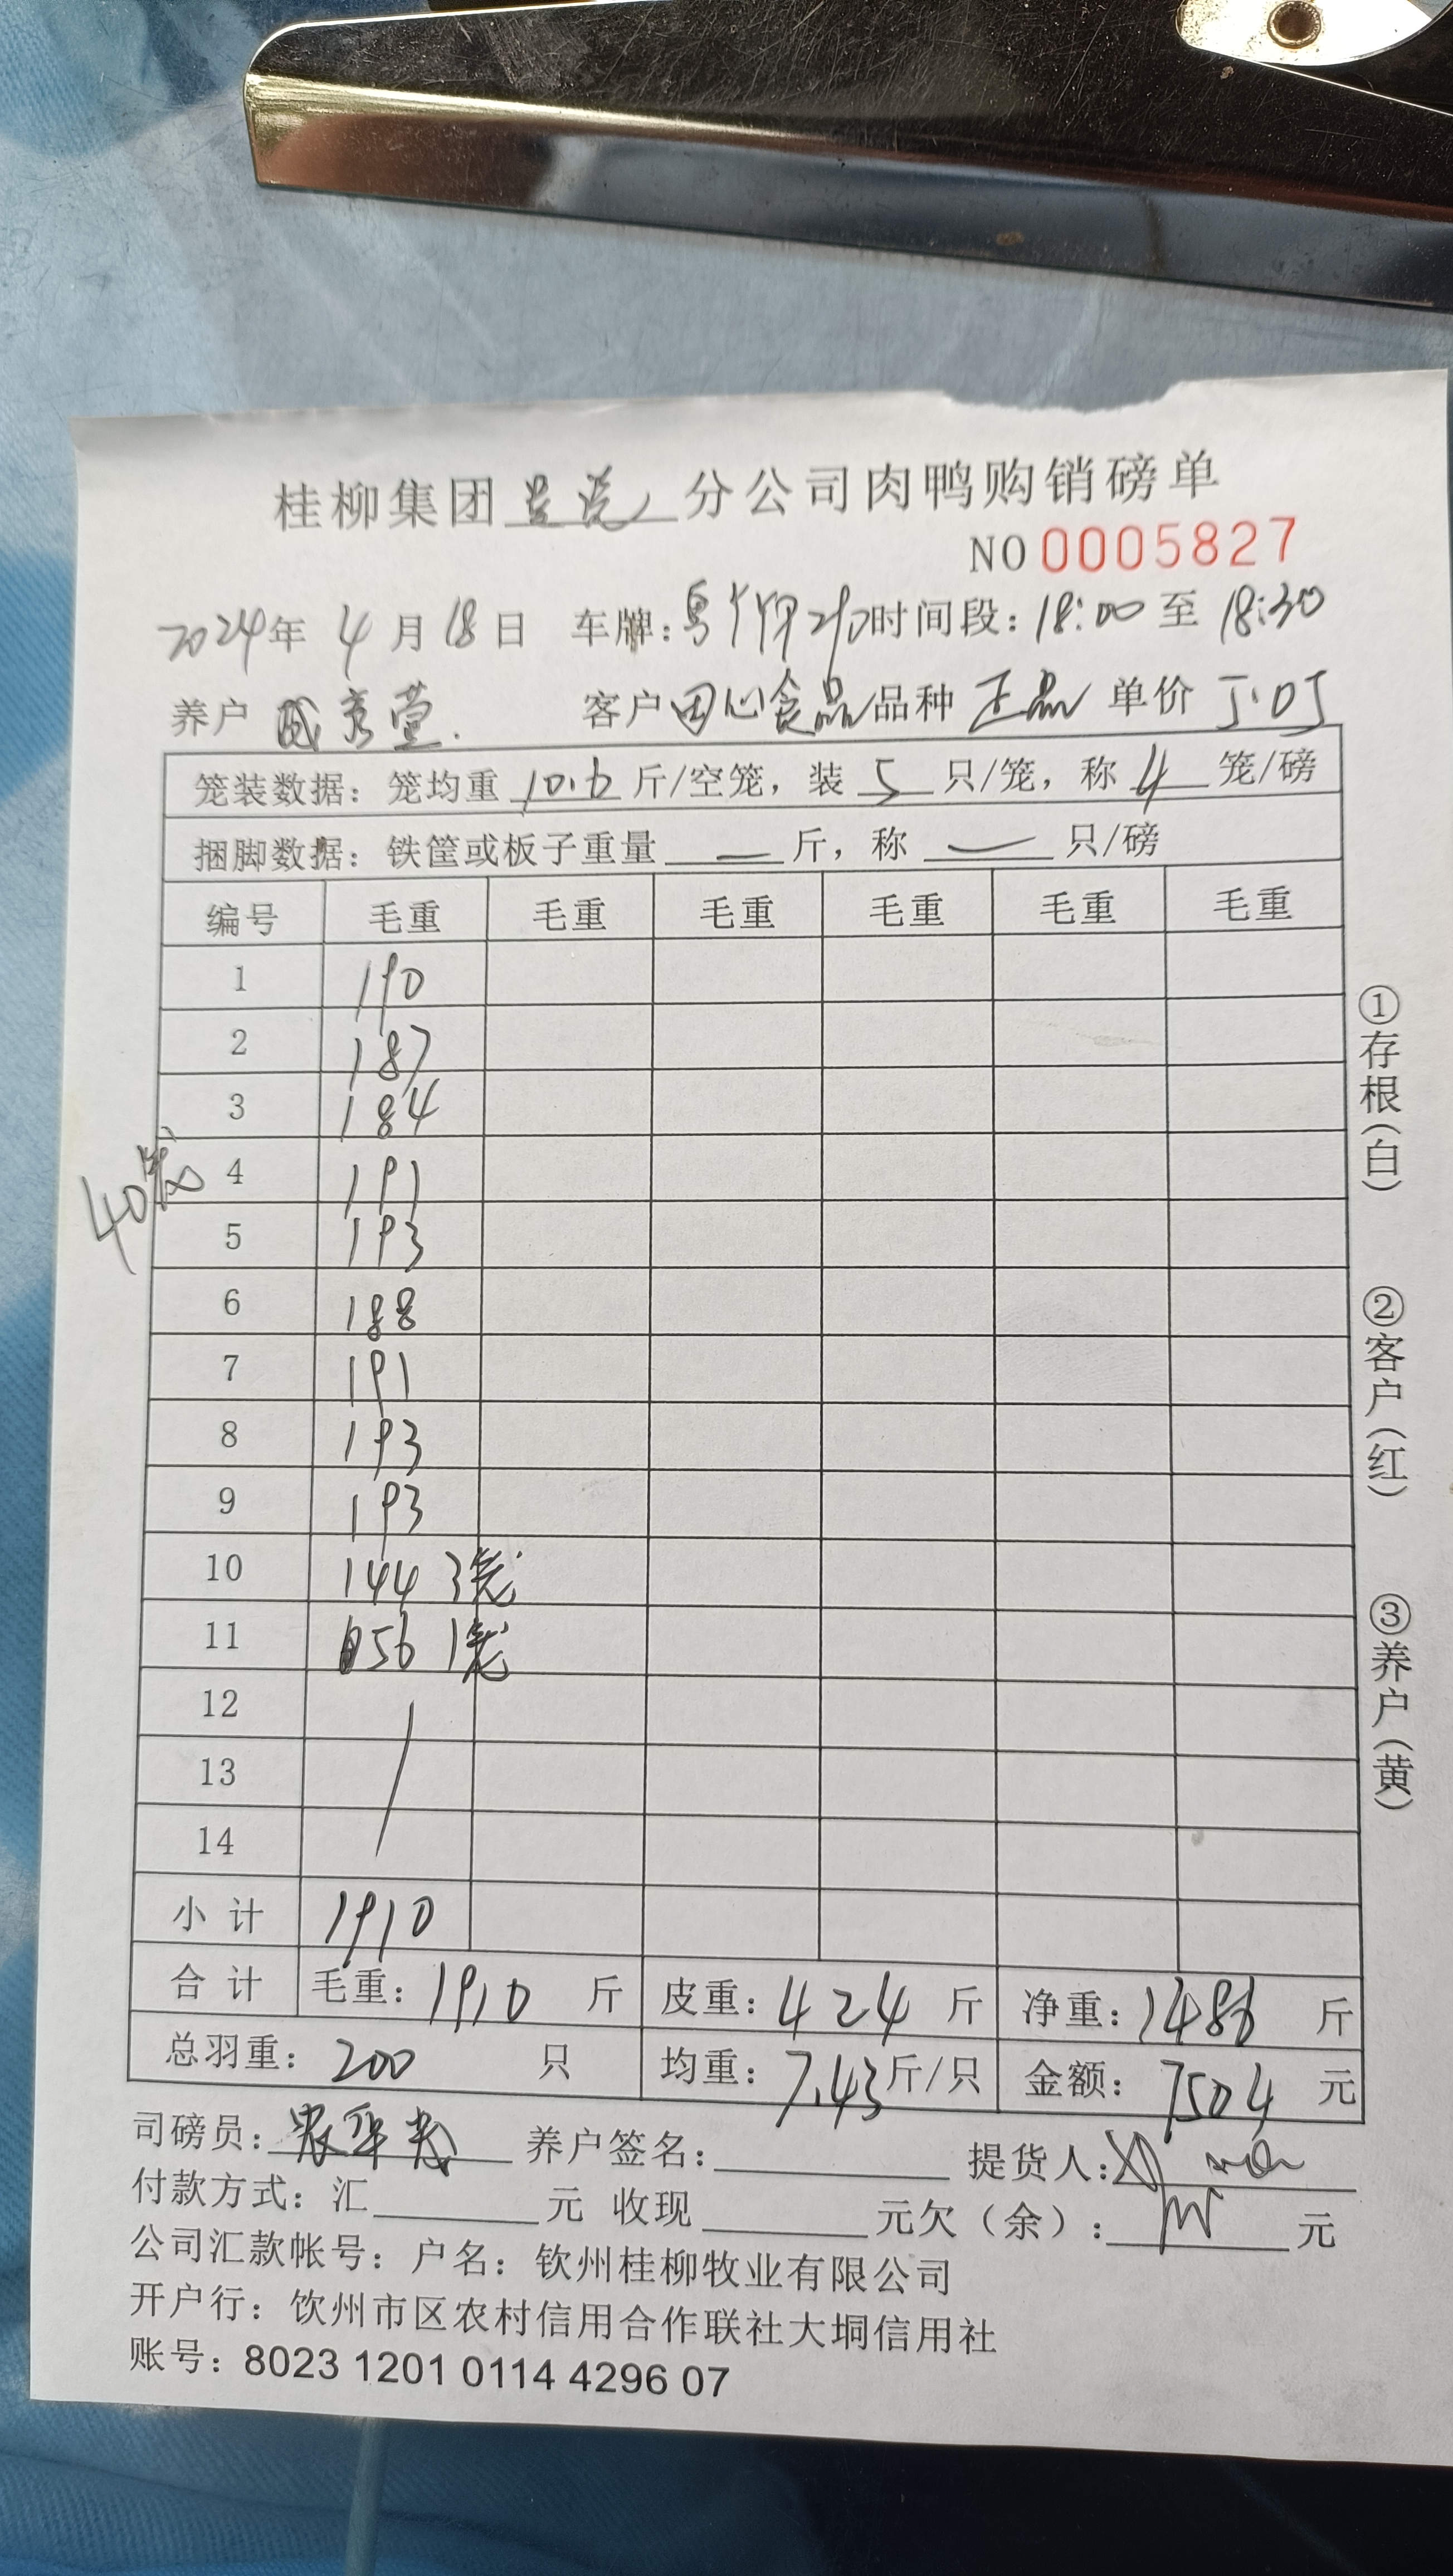 桂柳集团 分公司肉鸭购销磅单
NO 0005827
2024年 4月 18日 车牌: 时间段: 18:00 至 18:30
养户 客户 田心食品 品种 正品 单价 5.05
笼装数据: 笼均重 10.6 斤/空笼, 装 5 只/笼, 称 4 笼/磅
捆脚数据: 铁筐或板子重量 — 斤, 称 — 只/磅
编号 毛重 毛重 毛重 毛重 毛重 毛重
1 190
2 187
3 184
40笼
4 191
5 193
6 188
7 191
8 193
9 193
10 144 3笼
11 56 1笼
12
13
14
小计 1910
合计 毛重: 1910 斤 皮重: 424 斤 净重: 1486 斤
总羽重: 200 只 均重: 7.43 斤/只 金额: 7504 元
司磅员: 养户签名: 提货人:
付款方式: 汇 元 收现 元欠(余): 元
公司汇款帐号: 户名: 钦州桂柳牧业有限公司
开户行: 钦州市区农村信用合作联社大垌信用社
账号: 8023 1201 0114 4296 07
①存根(白)
②客户(红)
③养户(黄)